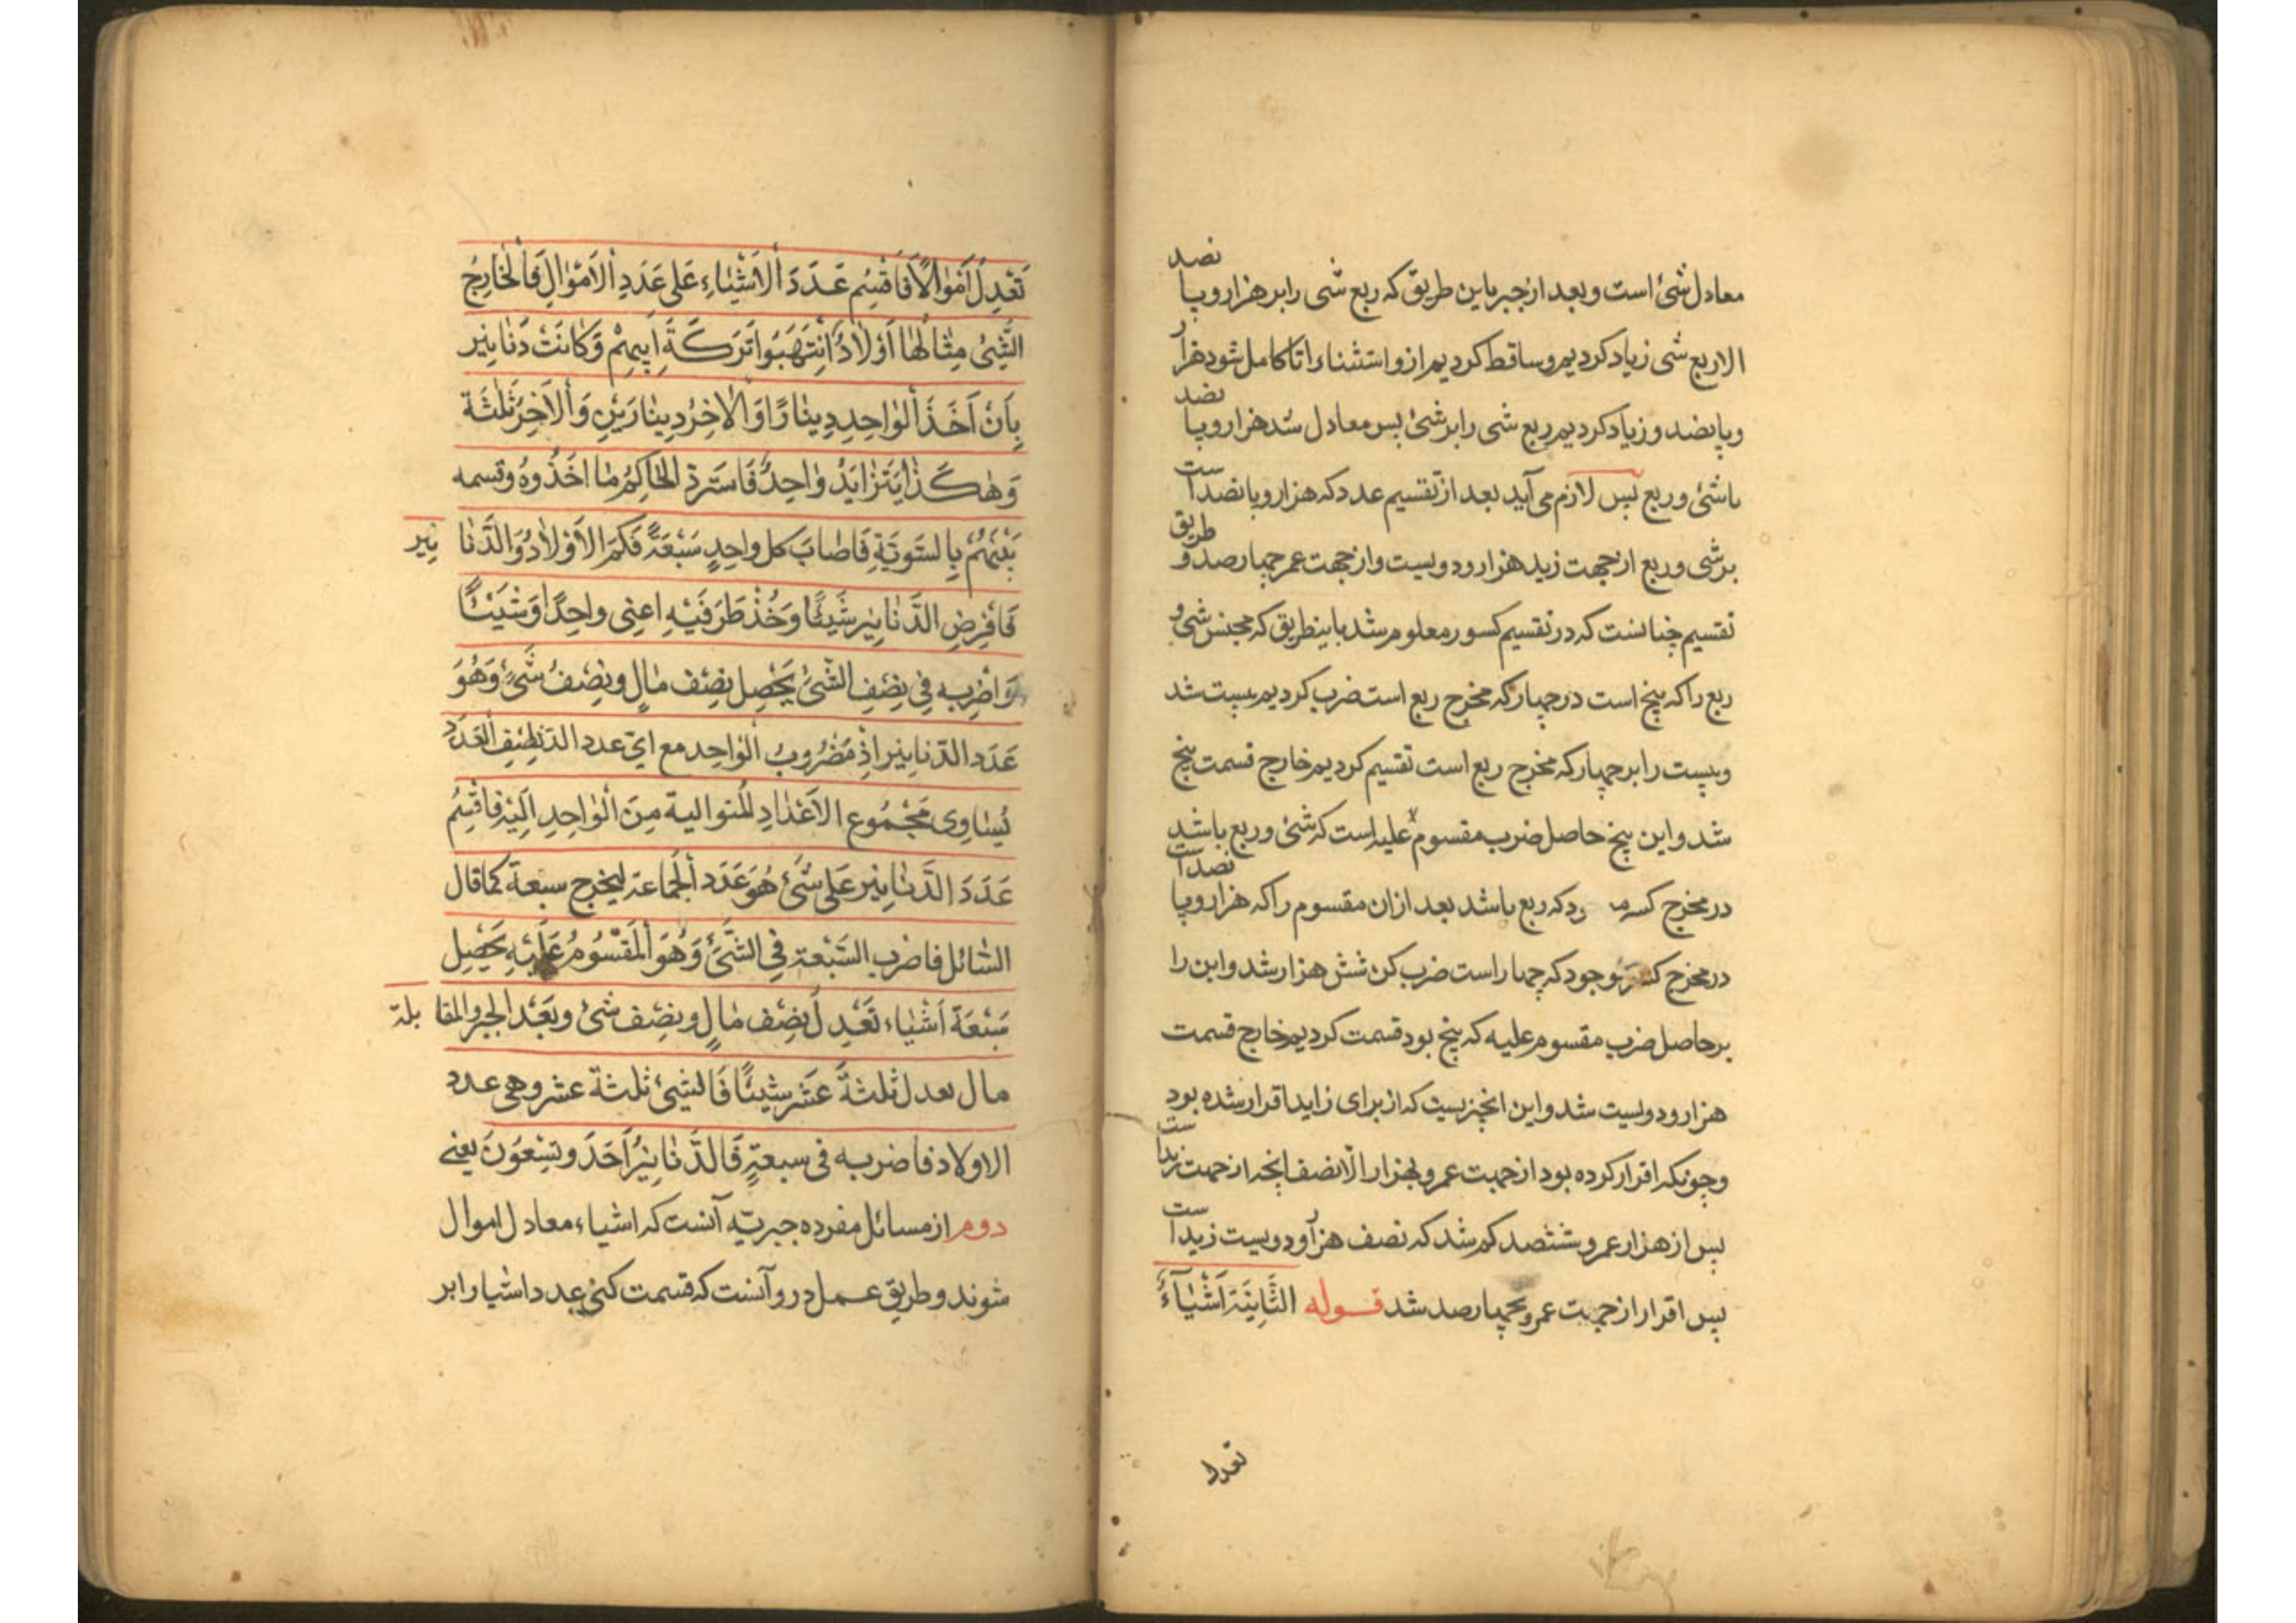 معادل شیٔ است و بعد از جبر باین طریق که ربع شی را بر هزار و پا نصد
الا ربع شی زیاد کردیم و ساقط کردیم از و استثناء را تا کامل شود هزار
و پانصد و زیاد کردیم ربع شی را بر شیٔ پس معادل شد هزار و پا نصد
باشیٔ و ربع پس لازم می آید بعد از تقسیم عدد که هزار و پانصد است
بر شی و ربع از جهت زید هزار و دویست و از جهت عمر چهارصد و طریق
تقسیم چنانست که در تقسیم کسور معلوم شد باینطریق که مجنس شی و
ربع را که پنج است در چهار که مخرج ربع است ضرب کردیم بیست شد
و بیست را بر چهار که مخرج ربع است تقسیم کردیم خارج قسمت پنج
شد و این پنج حاصل ضرب مقسوم علیه است که شیٔ و ربع باشد
در مخرج کسر که ربع باشد بعد از ان مقسوم را که هزار و پا نصد است
در مخرج کسر موجود که چهار است ضرب کن شش هزار شد و این را
بر حاصل ضرب مقسوم علیه که پنج بود قسمت کردیم خارج قسمت
هزار و دویست شد و این انچیزیست که از برای زاید اقرار شده بود
و چونکه اقرار کرده بود از جهت عمرو بهزار الا نصف انچه از جهت زید است
پس از هزار عمرو ششصد کم شد که نصف هزار و دویست زید است
پس اقرار از جهت عمرو بچهارصد شد قوله الثَّانِیَة اَشْیٰآءُ
تعدل
تَعْدِلُ اَمْوٰالًا فَاقْسِمْ عَدَدَ الْاَشْیٰاءِ عَلی عَدَدِ الْاَمْوٰالِ فَالْخٰارِجُ
الشَّیْئُ مِثٰالُهٰا اَوْلٰادٌ اِنْتَهَبُوا تَرَکَةَ اَبِیهِمْ وَکٰانَتْ دَنٰانِیر
بِاَنْ اَخَذَ الْوٰاحِدِ دِینٰارًا وَالْاٰخِرُ دِینٰارَیْنِ وَالْاٰخِرُ ثَلٰثَة
وَهٰکَذٰا یَتَزٰایَدُ وٰاحِدٌ فَاسْتَرَدَّ الْحٰاکِمُ مٰا اَخَذُوهُ وقسمه
بَیْنَهُمْ بِالسَّوِیَّةِ فَاَصٰابَ کل واحِدٍ سَبْعَةٌ فَکَمِ الْاَوْلٰادُ وَالدَّنٰا نِیر
فَافْرِضِ الدَّنٰانِیر شَیْئًا وَخُذْ طَرَفَیْهِ اعنِی واحِدًا وَشَیْئًا
وَاضْرِبه فِی نِصْفِ الشَّیْئِ یَحْصِل نِصْف مٰالٍ ونِصْفُ شَیْئٍ وَهُوَ
عَدَد الدَّنٰانِیر اِذْ مَضْرُوبُ الْوٰاحِد مع ایّ عدد الدَّ نِصْفِ الْعَدَدِ
یُسٰاوِی مَجْمُوع الْاَعْدٰادِ الْمُتوالیة مِنَ الْوٰاحِدِ اِلَیْهِ فَاقْسِمْ
عَدَدَ الدَّنٰانِیر عَلی شَیْئٍ هُوَ عَدَد الْجَمٰاعة لیخرج سبعة کما قال
السّٰائل فاضرب السَّبْعة فِی الشَّیْئِ وَهُوَ الْمَقْسُومُ عَلَیْهِ یَحْصِل
سَبْعَة اَشْیٰاء تَعْدِلُ نِصْف مٰالٍ ونِصْف شیٔ وبَعْدَ الجبر والمقا بلة
مال یعدل ثلثةَ عَشَر شیئًا فَالشیٔ ثلثة عشر وهی عدد
الاولاد فاضربه فی سبعةٍ فَالدَّنٰانِیرُ اَحَدٌ وتِسْعُوَنَ یعنے
دوم از مسائل مفرده جبریّه آنست که اشیاء معادل اموال
شوند و طریق عمل در و آنست که قسمت کنی عدد اشیا را بر